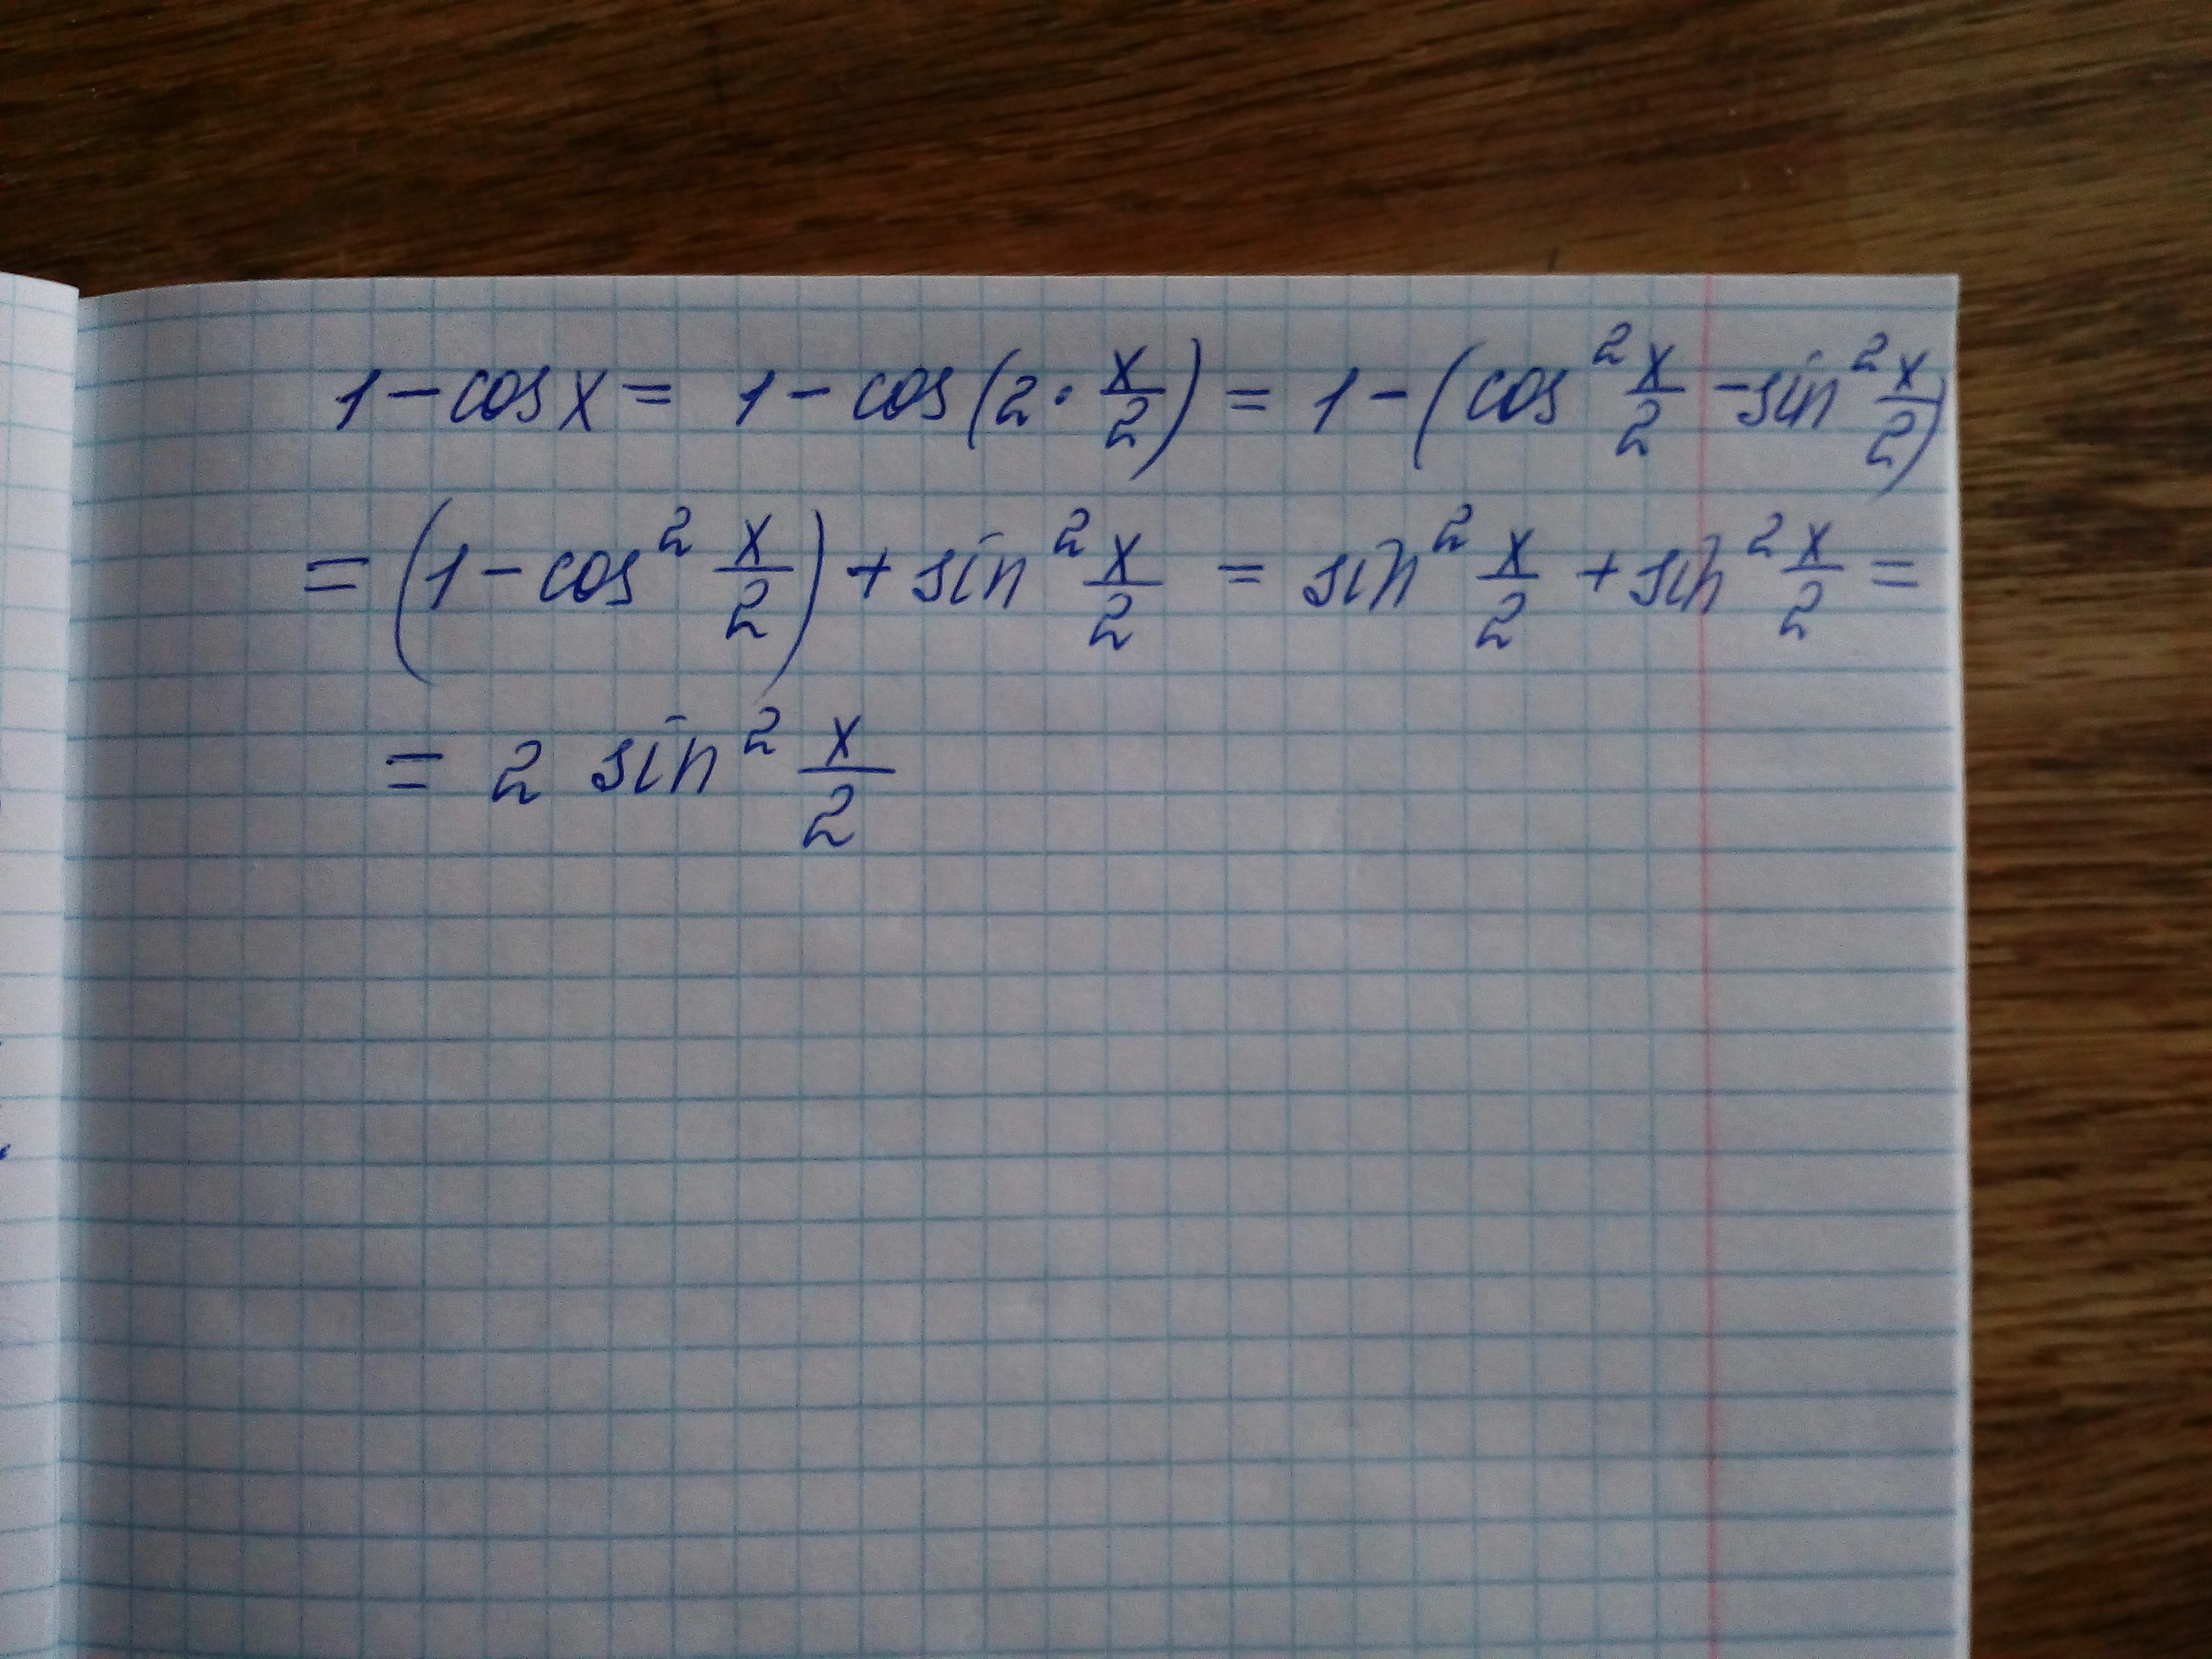 1 - cos x = 1 - cos(2 · x/2) = 1 - (cos² x/2 - sin² x/2)
= (1 - cos² x/2) + sin² x/2 = sin² x/2 + sin² x/2 =
= 2 sin² x/2